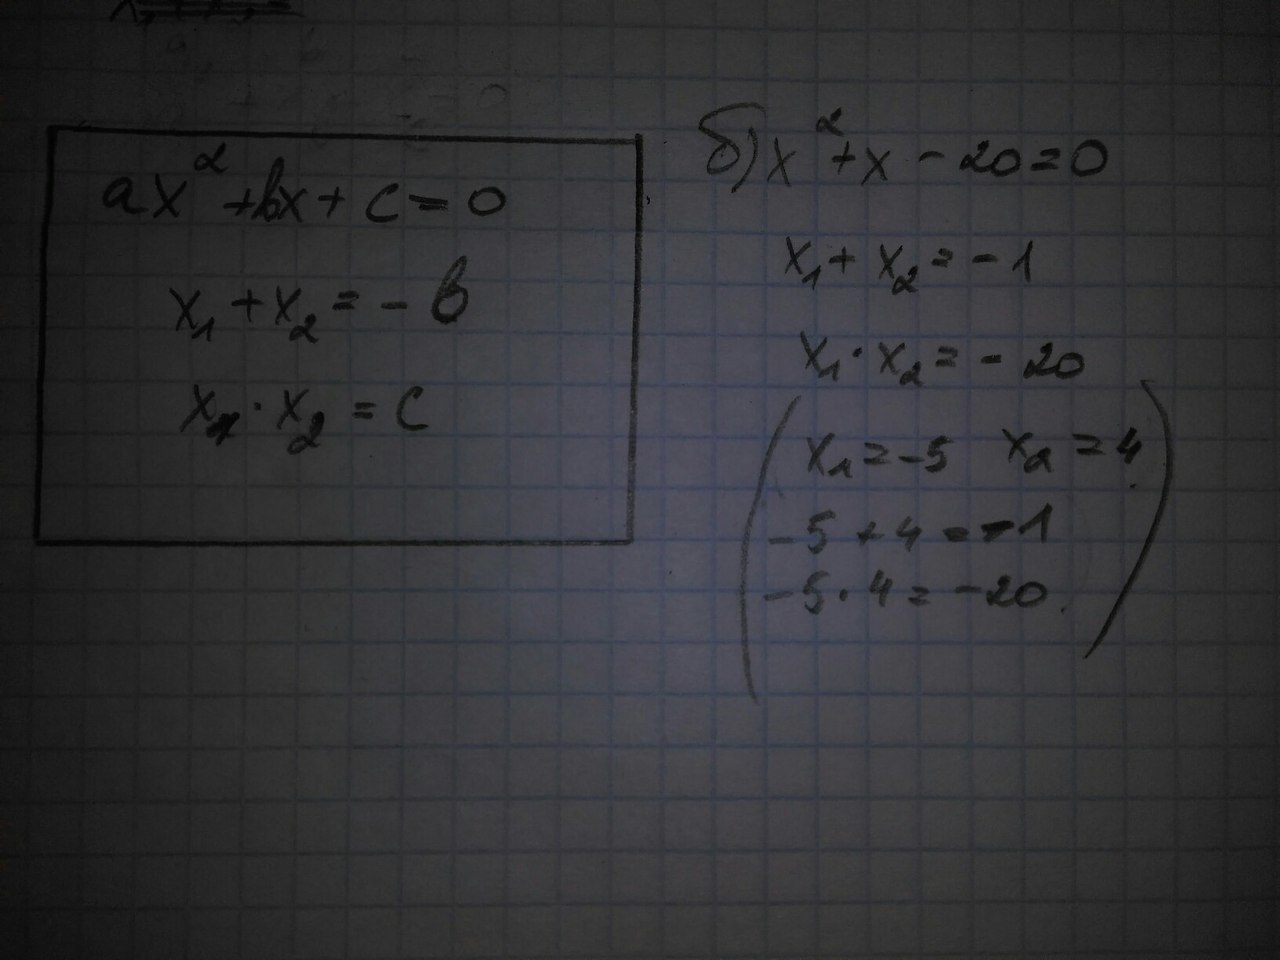 ax² + bx + c = 0
x₁ + x₂ = - b
x₁ · x₂ = c
б) x² + x - 20 = 0
x₁ + x₂ = - 1
x₁ · x₂ = - 20
( x₁ = -5 x₂ = 4
-5 + 4 = -1
-5 · 4 = -20 )